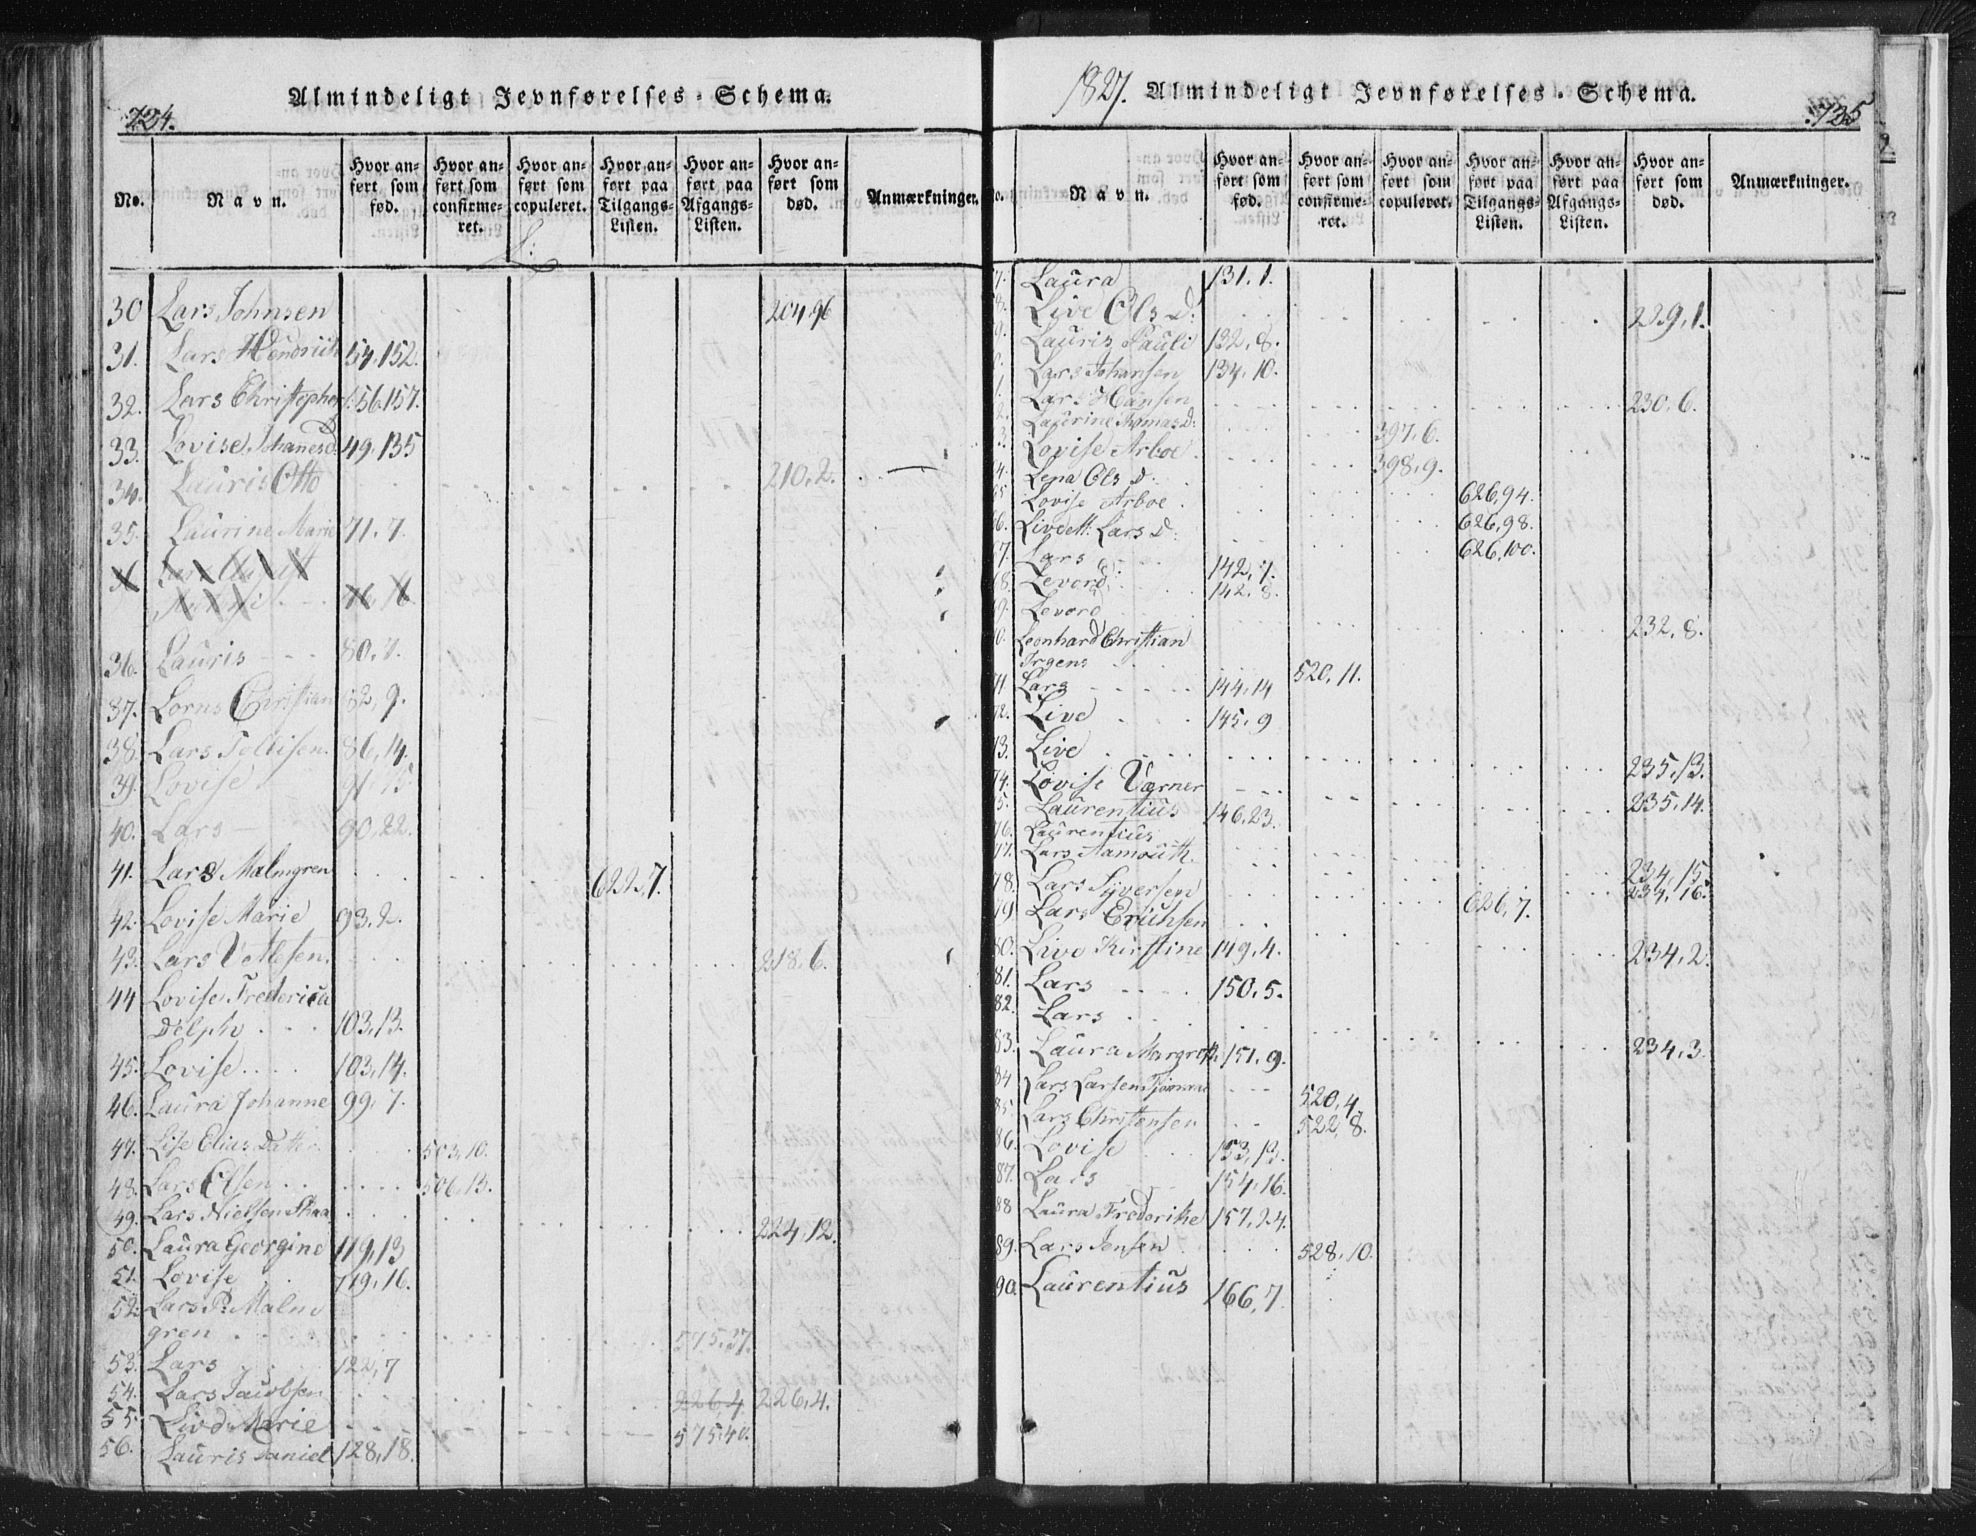 Almindeligt Jevnførelses-Schema.
724.
No.
Navn.
Hvor anført som fød.
Hvor anført som confirmeret.
Hvor anført som copuleret.
Hvor anført paa Tilgangs-Listen.
Hvor anført paa Afgangs-Listen.
Hvor anført som død.
Anmærkninger.
L:
30 Lars Johnsen 204,96
31. Lars Hendrich 54,152.
32. Lars Christopher 56,157.
33. Lovise Johanesd. 49,135
34. Lauris Otto 210,2.
35. Laurine Marie 71,7.
36. Lauris 80,7.
37. Lorns Christian 82,9.
38. Lars Tollefsen 86,14.
39. Lovise 91,15
40. Lars 90,22.
41. Lars Malmgren 622,7.
42. Lovise Marie 93,2.
43. Lars Vetlesen. 218,6.
44 Lovise Frederica
Delph 103,13.
45. Lovise 103,14.
46. Laura Johanne 99,7.
47. Lise Elias Datter 503,10.
48. Lars Olsen 506,13.
49. Lars Nielsen 224,12.
50. Laura Georgine 119,13
51. Lovise 119,16.
52. Lars P. Malm
gren 575,37.
53. Lars 122,7
54. Lars Jacobsen 226,4 226,4.
55. Live Marie 575,40.
56. Lauris Daniel 128,18.
1827. Almindeligt Jevnførelses-Schema.
725
No.
Navn.
Hvor anført som fød.
Hvor anført som confirmeret.
Hvor anført som copuleret.
Hvor anført paa Tilgangs-Listen.
Hvor anført paa Afgangs-Listen.
Hvor anført som død.
Anmærkninger.
7. Laura 131,1.
8. Live Ols D. 229,1.
9. Lauris Pauli 132,8.
0. Lars Johansen 134,10.
1. Lars Hansen 230,6.
2. Laurine Thomas D: 397,6.
3. Lovise Arboe 398,9.
4. Lena Ols D. 626,94.
65 Lovise Arboe 626,98.
66. Live M: Lars D: 626,100.
67. Lars 142,7.
68. Levord 142,8.
69. Levord 232,8.
70. Leonhard Christian
Irgens 520,11.
71 Lars 144,14
72. Live 145,9
73. Live 235,13.
74. Lovise Værner 235,14.
75. Laurentius 146,23.
76. Laurentius 234,15.
77. Lars Aamouth. 234,16.
78. Lars Syversen 626,7.
79 Lars Erichsen 234,2.
80. Live Kirstine 149,4.
81. Lars 150,5.
82. Lars 234,3.
83. Laura Margreth. 151,9.
84 Lars Larsen 520,4
85. Lars Christensen 522,8.
86. Lovise 153,13.
87. Lars 154,16.
88 Laura Frederike 157,24.
89. Lars Jensen 528,10.
90. Laurentius 166,7